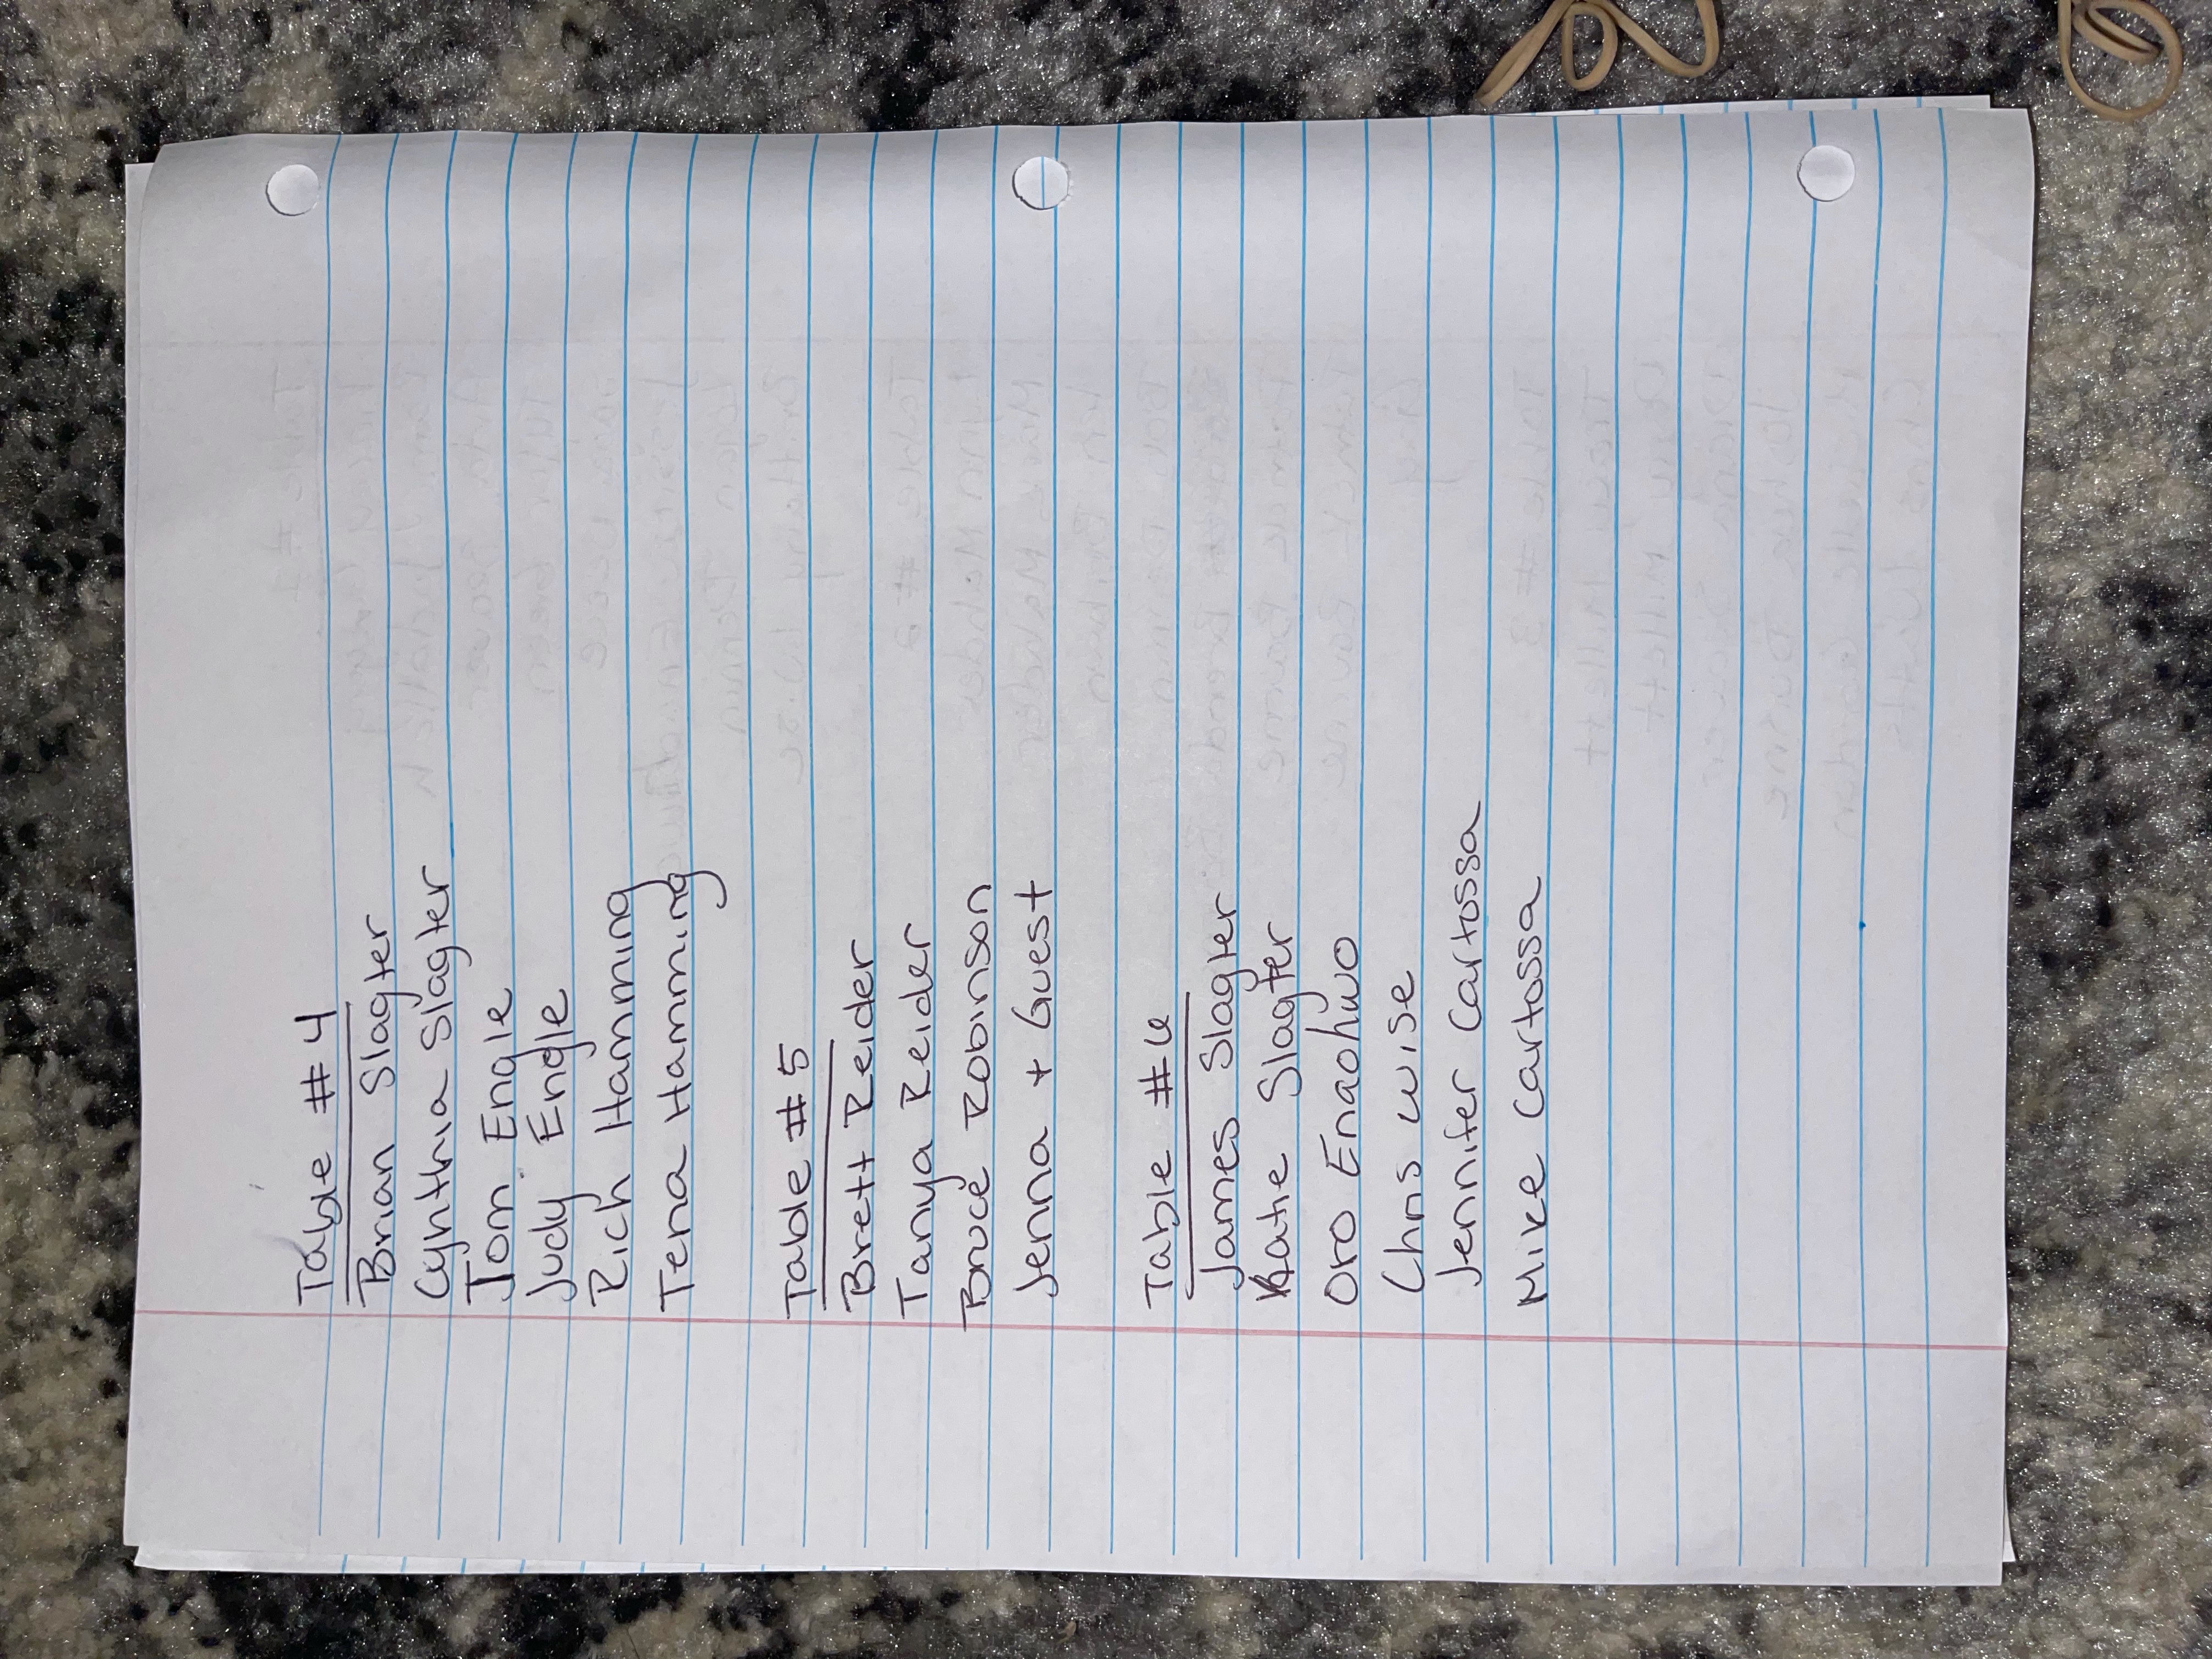 Table #4
Brian Slagter
Cynthia Slagter
Tom Engle
Judy Engle
Rich Hamming
Tena Hamming
Table #5
Brett Reider
Tanya Reider
Bruce Robinson
Jenna + Guest
Table #6
James Slagter
Katie Slagter
Oro Enaohwo
Chris Wise
Jennifer Cartossa
Mike Cartossa